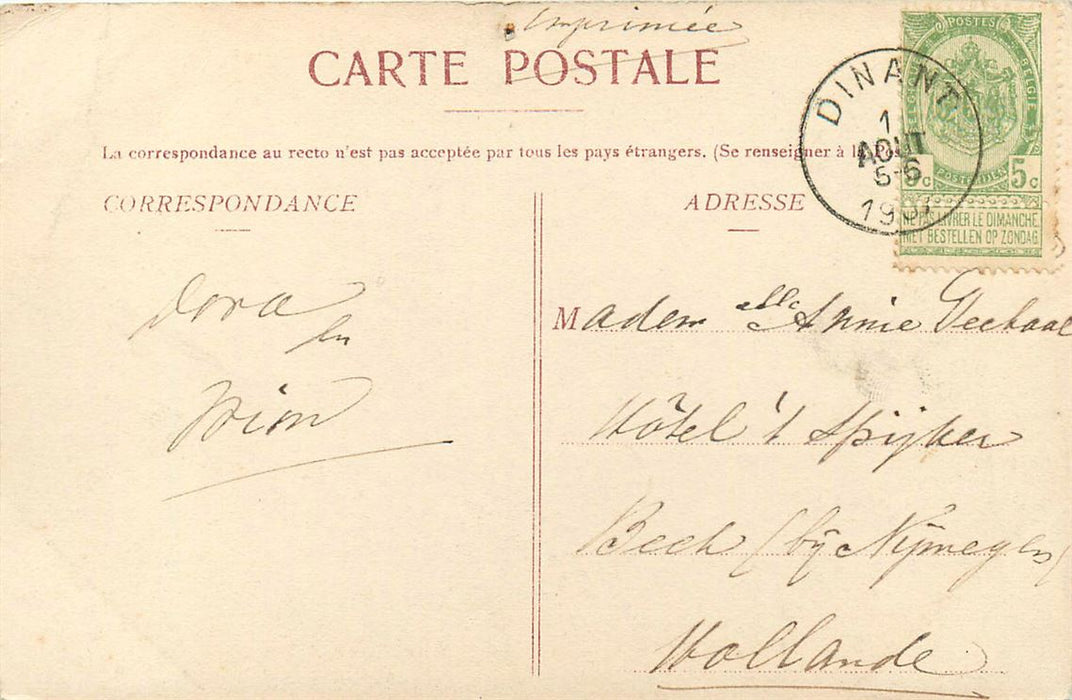 Imprimée
CARTE POSTALE
La correspondance au recto n'est pas acceptée par tous les pays étrangers. (Se renseigner à la
CORRESPONDANCE
ADRESSE
POSTES
BELGIE
POSTERIJEN
5c 5c
NE PAS LIVRER LE DIMANCHE
NIET BESTELLEN OP ZONDAG
DINANT
1
AOUT
5-6
19
Dora
en
Wim
Madem elle Annie
Hôtel 't Spijker
Beek (bij Nijmegen)
Hollande